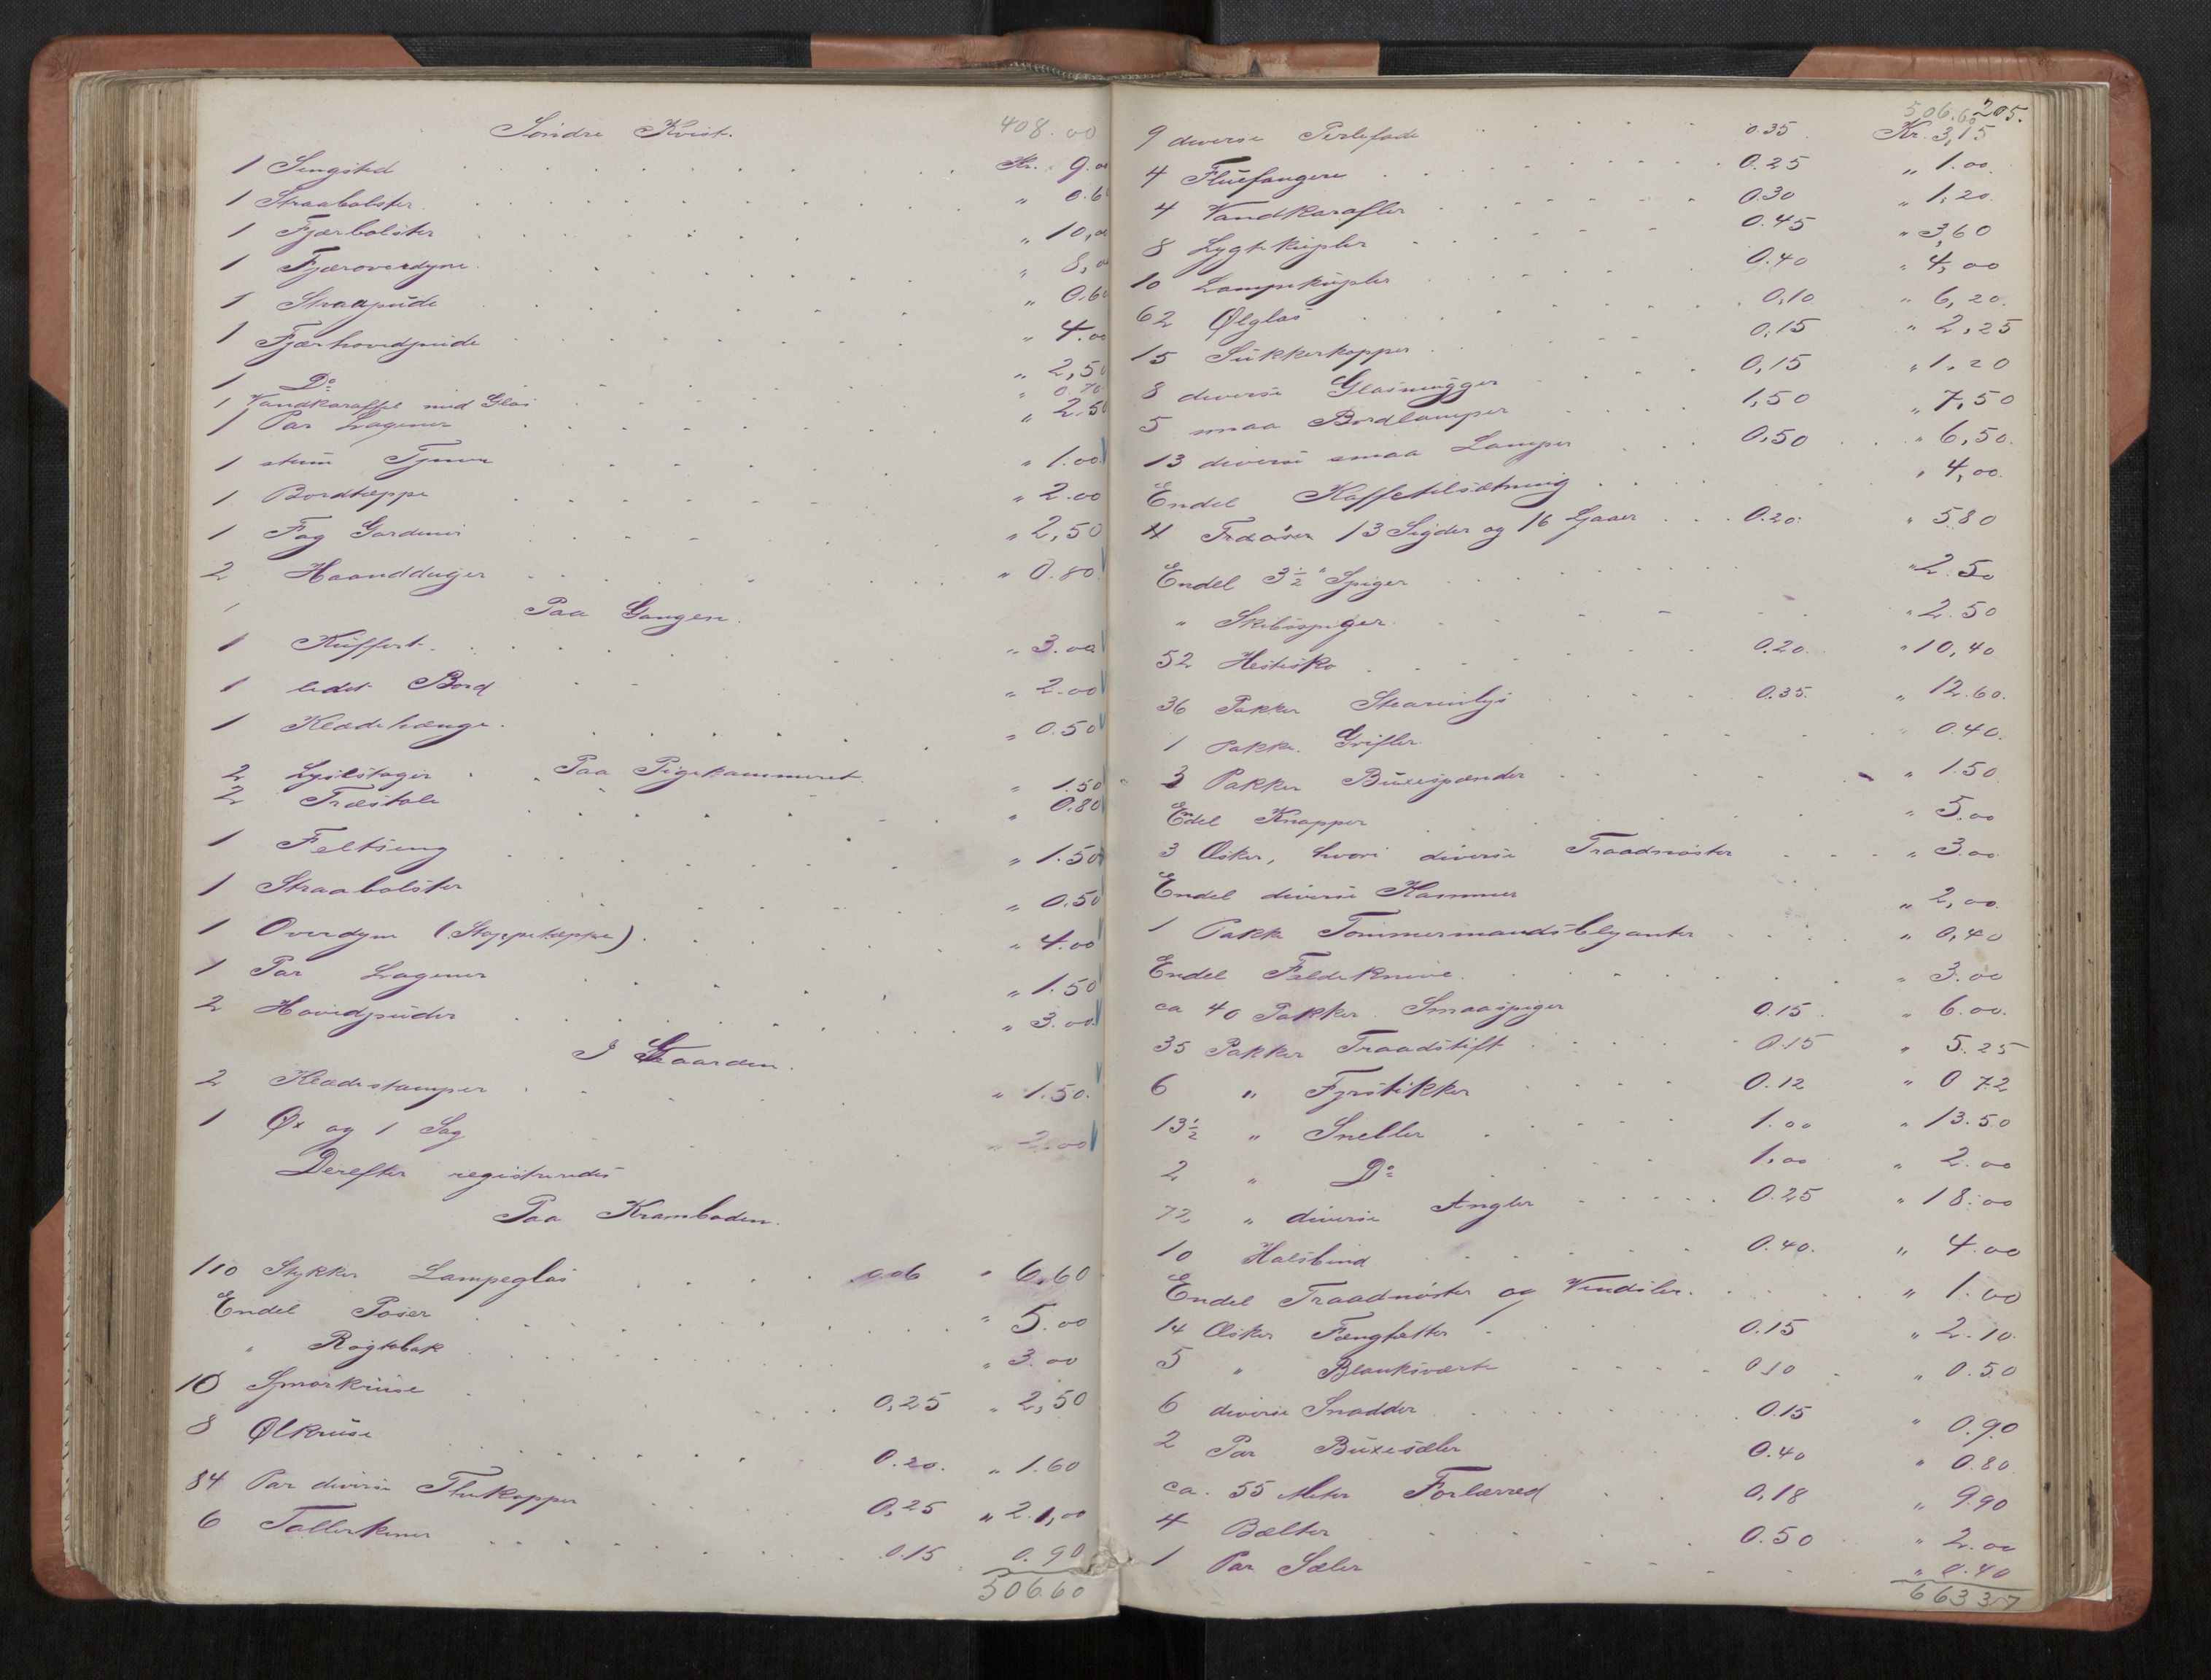 Søndre Kvist. 408.00
1 Sengsted Kr. 9.00
1 Straabolster " 0.60
1 Fjærbolster " 10,00
1 Fjæroverdyne " 8,00
1 Straapude " 0.60
1 Fjærhovedpude " 4.00
1 Do " 2,50
1 Vandkaraffel med Glas " 0.70
1 Par Lagener " 2.50
1 stum Tjener " 1.00
1 Bordtæppe " 2.00
1 Fag Gardiner " 2,50
2 Haandduger " 0.80
Paa Gangen.
1 Kuffert " 3.00
1 lidet Bord " 2.00
1 Klædehænge " 0.50
2 Lysestager " 1.50
Paa Pigekammeret.
2 Træstole " 0.80
1 Feltseng " 1.50
1 Straabolster " 0.50
1 Overdyne (Stoppetæppe) " 4.00
1 Par Lagener " 1.50
2 Hovedpuder " 3.00
I Gaarden.
2 Klædestamper " 1.50.
1 Øx og 1 Sag " 2.00
Derefter registreredes
Paa Kramboden.
110 Stykker Lampeglas 0.06 " 6.60
Endel Poser " 5.00
" Røgtobak " 3.00
10 Smørkruse 0,25 " 2,50
8 Ølkruse 0.20. " 1.60
84 Par diverse Thekopper 0,25 " 21,00
6 Tallerkener 0.15 0.90
506.60
506.60 205.
9 diverse Perlefade 0.35 Kr. 3,15
4 Fluefangere 0.25 " 1.00.
4 Vandkarafler 0.30 " 1,20.
8 Lygtekupler 0.45 " 3,60
10 Lampekupler 0.40 " 4,00
62 Ølglas 0,10 " 6,20.
15 Sukkerkopper 0,15 " 2,25
8 diverse Glasmugger 0,15 " 1,20
5 smaa Bordlamper 1,50 " 7,50
13 diverse smaa Lamper 0,50 " 6,50.
Endel Kaffetilsætning " 4,00.
4 Træøser 13 Sigder og 16 Ljaaer 0.20. " 5.80
Endel 3 1/2" Spiger " 2.50
" Skibsspiger " 2.50
52 Hestesko 0.20. " 10,40
36 Pakker Stearinlys 0.35. " 12.60.
1 Pakke Grifler " 0.40.
3 Pakker Buxespænder " 1.50
Endel Knapper " 5.00
3 Æsker, hvori diverse Traadnøster " 3.00
Endel diverse Kammer " 2,00.
1 Pakke Tømmermandsblyanter " 0,40
Endel Foldeknive " 3.00
ca 40 Pakker Smaaspiger 0.15. " 6.00.
35 Pakker Traadstift 0.15 " 5.25
6 " Fyrstikker 0.12 " 0.72
13 1/2 " Sneller 1.00 " 13.50
2 " Do 1,00 " 2.00
72 " diverse Angler 0.25 " 18.00
10 Halsbind 0.40. " 4.00
Endel Traadnøster og Vindsler " 1.00
14 Æsker Fænghætter 0.15 " 2.10
5 " Blanksværte 0.10 " 0.50
6 diverse Snadder 0.15 " 0.90
2 Par Buxesæler 0.40 " 0.80
ca. 55 Meter Forlærred 0,18 " 9.90
4 Bælter 0.50 " 2.00
1 Par Sæler " 0.40
663 37